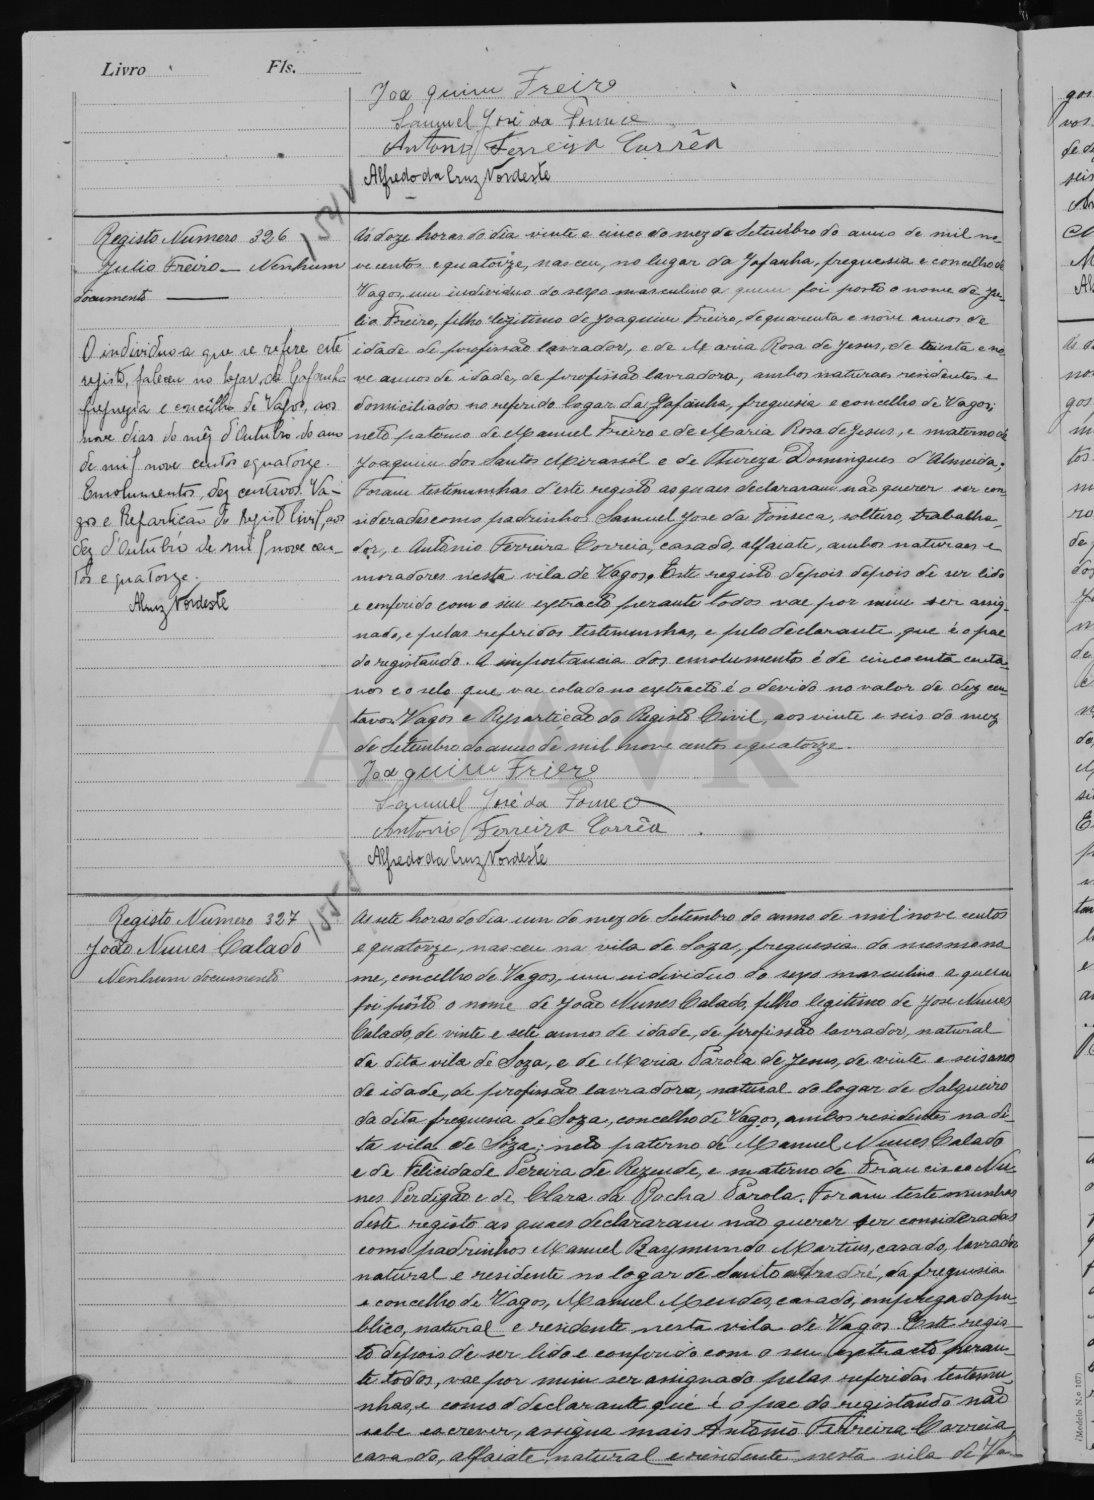 Livro Fls.
Joaquim Freire
Samuel José da Fonseca
Antonio Ferreira Corrêa
Alfredo da Cruz Nordeste
Registo Numero 326
Julio Freiro — Nenhum
documento —
O individuo a que se refere este
registo, faleceu no logar da Gafanha
freguezia e concelho de Vagos, aos
nove dias do mês d'Outubro do ano
de mil nove centos e quatorze.
Emolumentos, dez centavos. Va-
gos e Repartição do Registo Civil, aos
dez d'Outubro de mil nove cen-
tos e quatorze.
ACruz Nordeste
154
Ás doze horas do dia vinte e cinco do mez de Setembro do anno de mil no-
ve centos e quatorze, nasceu, no lugar da Gafanha, freguesia e concelho de
Vagos, um individuo do sexo masculino a quem foi posto o nome de Ju-
lio Freiro, filho legitimo de Joaquim Freiro, de quarenta e nove annos de
idade de profissão lavrador, e de Maria Rosa de Jesus, de trinta e no-
ve annos de idade, de profissão lavradora, ambos naturaes residentes e
domiciliados no referido logar da Gafanha, freguesia e concelho de Vagos;
neto paterno de Manuel Freiro e de Maria Rosa de Jesus, e materno de
Joaquim dos Santos Mirassól e de Thereza Domingues d'Almeida.
Foram testemunhas d'este registo as quaes declararam não querer ser con-
sideradas como padrinhos Samuel José da Fonseca, solteiro, trabalha-
dor, e Antonio Ferreira Correia, casado, alfaiate, ambos naturaes e
moradores nesta vila de Vagos. Este registo depois depois de ser lido
e conferido com o seu extracto perante todos vae por mim ser assig-
nado, e pelas referidas testemunhas, e pelo declarante, que é o pae
do registando. A importancia dos emolumentos é de cincoenta centa-
vos e o selo que vae colado no extracto é o devido no valor de dez cen-
tavos. Vagos e Repartição do Registo Civil, aos vinte e seis do mez
de Setembro do anno de mil nove centos e quatorze.
Joaquim Friero
Samuel José da Fonseca
Antonio Ferreira Corrêa
Alfredo da Cruz Nordeste
ADAVR
Registo Numero 327
João Nunes Calado
Nenhum documento
155
Ás sete horas do dia um do mez de Setembro do anno de mil nove centos
e quatorze, nasceu na vila de Soza, freguesia do mesmo no-
me, concelho de Vagos, um individuo do sexo masculino a quem
foi pôsto o nome de João Nunes Calado, filho legitimo de José Nunes
Calado, de vinte e sete annos de idade, de profissão lavrador, natural
da dita vila de Soza, e de Maria Párola de Jesus, de vinte e seis anos
de idade, de profissão lavradora, natural do logar de Salgueiro
da dita freguesia de Soza, concelho de Vagos, ambos residentes na di-
ta vila de Sóza; neto paterno de Manuel Nunes Calado
e de Felicidade Pereira de Rezende, e materno de Francisco Nu-
nes Perdigão e de Clara da Rocha Párola. Foram testemunhas
deste registo as quaes declararam não querer ser consideradas
como padrinhos Manuel Raymundo Martins, casado, lavrador
natural e residente no logar de Santo André, da freguesia
e concelho de Vagos, Manuel Mendes, casado, empregado pu-
blico, natural e residente nesta vila de Vagos. Este regis-
to depois de ser lido e conferido com o seu extracto peran-
te todos, vae por mim ser assignado pelas referidas testemu-
nhas, e como o declarante que é o pae do registando não
sabe escrever, assigna mais Antonio Ferreira Correia
casado, alfaiate, natural e residente nesta vila de Va-
(Modelo N.º 107)